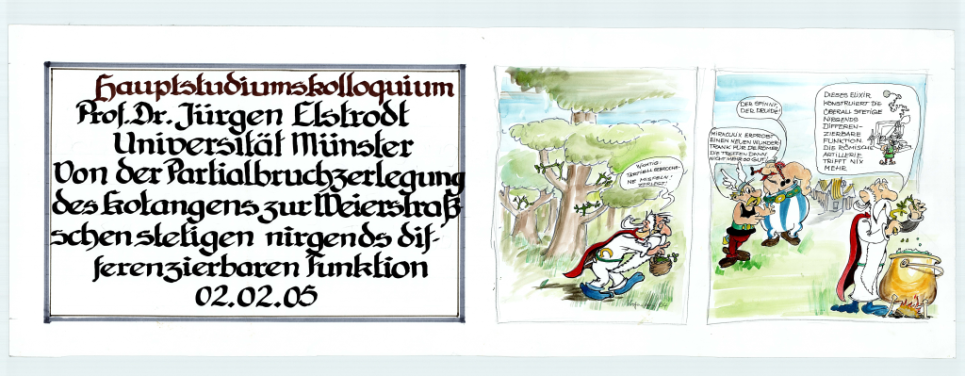 Hauptstudiumskolloquium
Prof. Dr. Jürgen Elstrodt
Universität Münster
Von der Partialbruchzerlegung
des Kotangens zur Weierstraß
schen stetigen nirgends dif-
ferenzierbaren Funktion
02.02.05
WICHTIG:
MISTELN
DER SPINNT,
DER DRUIDE!
MIRACULIX ERPROBT
EINEN NEUEN WUNDER-
TRANK FÜR DIE RÖMER
DIE TREFFEN DANN
NICHT MEHR SO GUT!
DIESES ELIXIR
KONSTRUIERT DIE
ÜBERALL STETIGE
NIRGENDS
DIFFEREN-
ZIERBARE
FUNKTION
DIE RÖMISCHE
ARTILLERIE
TRIFFT NIX
MEHR